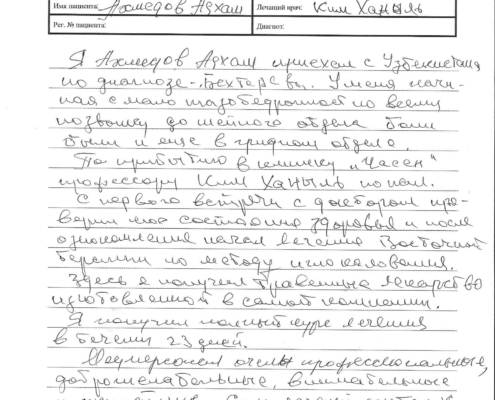 Имя пациента: Ахмедов Адхам Лечащий врач: Ким Ханыль
Рег. № пациента: Диагноз:
Я Ахмедов Адхам приехал с Узбекистана
по диагнозе - Бехтерева. У меня начи-
ная с мало тазобедренной по всему
позвонку до шейного отдела боли
были и еще в грудном отделе.
По прибытию в клинику "Часен"
профессору Ким Ханыль попал.
С первого встречи с доктором про-
верил мое состояние здоровья и после
ознакомления начал лечение Восточной
терапии по методу иглоукалования.
Здесь я получил травянные лекарство
изготовленной в самой клинике.
Я получил полный курс лечения
в течени 23 дней.
Медперсонал очень профессиональные,
доброжелательные, внимательные